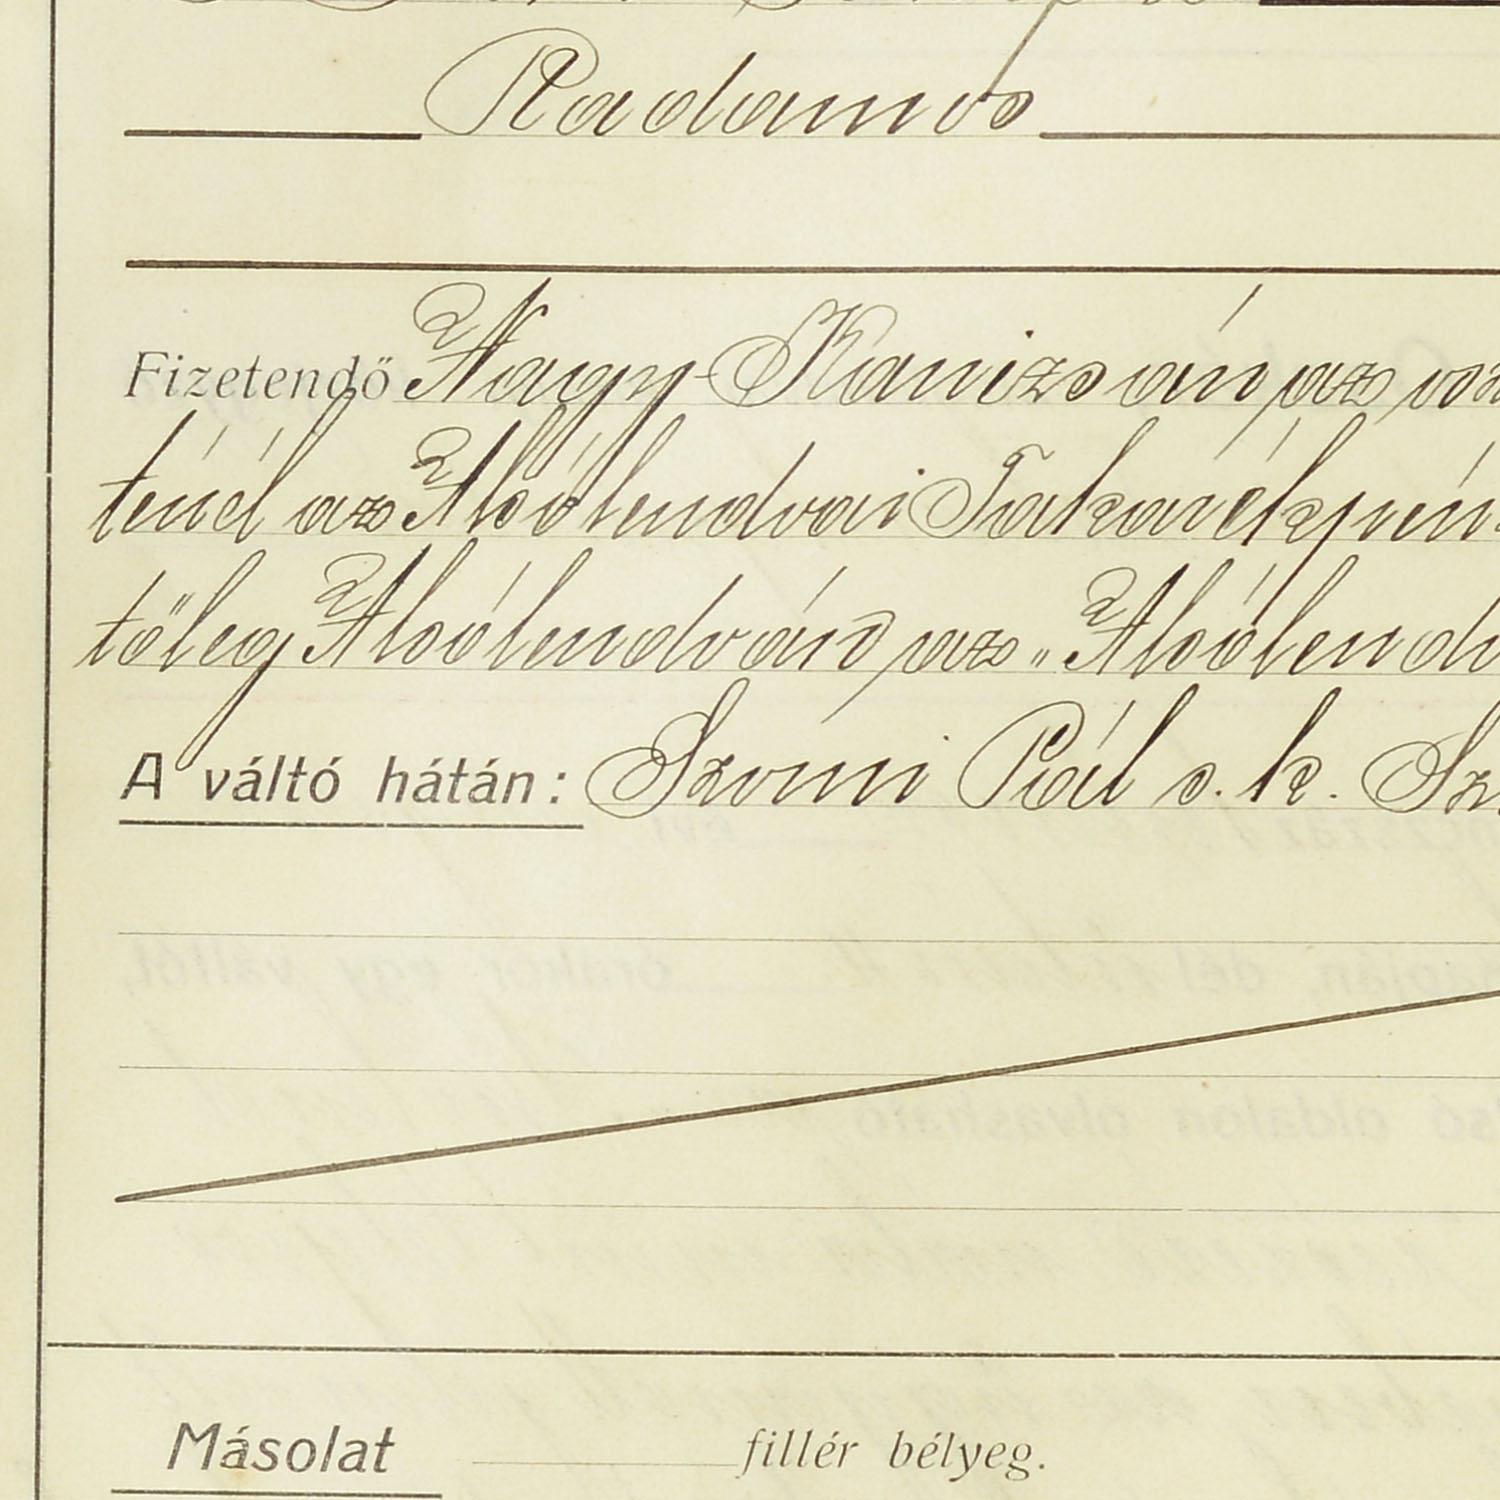 Radamos
Fizetendő Nagy-Kanizsán, az
ténél az Alsólendvai Takarékpén
tőleg Alsólendván, az „Alsólendv
A váltó hátán: Szomi Pál s. k. Sz
Másolat fillér bélyeg.